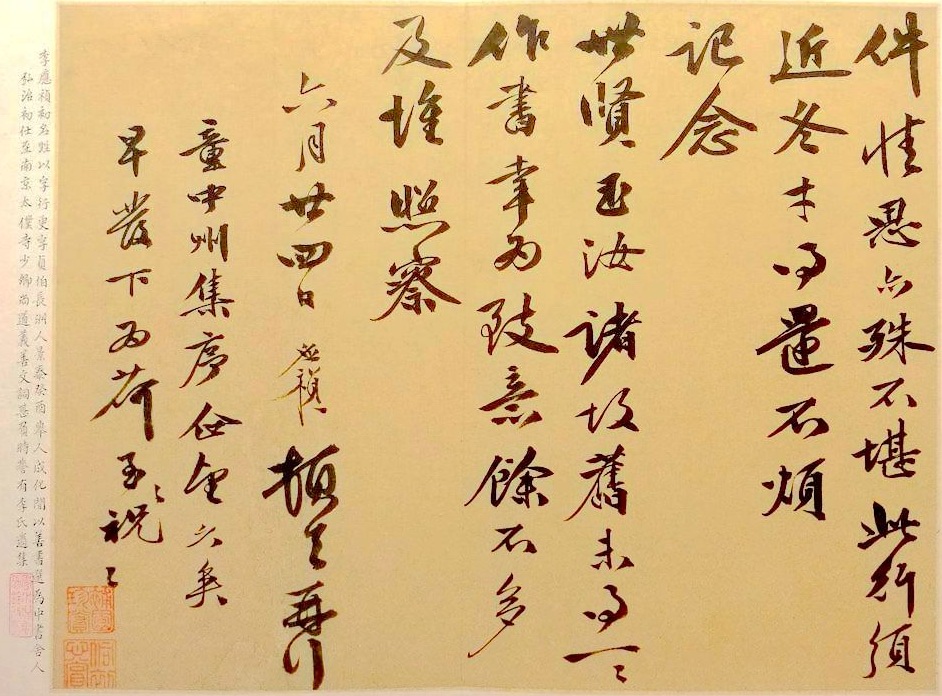 件情思亦殊不堪此行須
近冬才得還不煩
記念
世賢玉汝諸故舊未得一一
作書幸為致意餘不多
及惟照察
六月廿四日應禎頓首再拜
童中州集序企望久矣
早發下為荷至〻祝〻
李應禎初名甡以字行更字貞伯長洲人景泰癸酉舉人成化間以善書選為中書舍人
弘治初仕至南京太僕寺少卿尚道義善文詞甚負時譽有李氏遺集